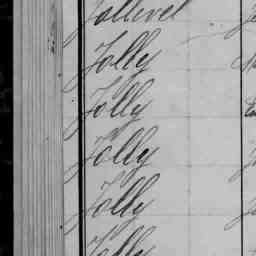 Jollivel
Jolly
Jolly
Jolly
Jolly
Jolly